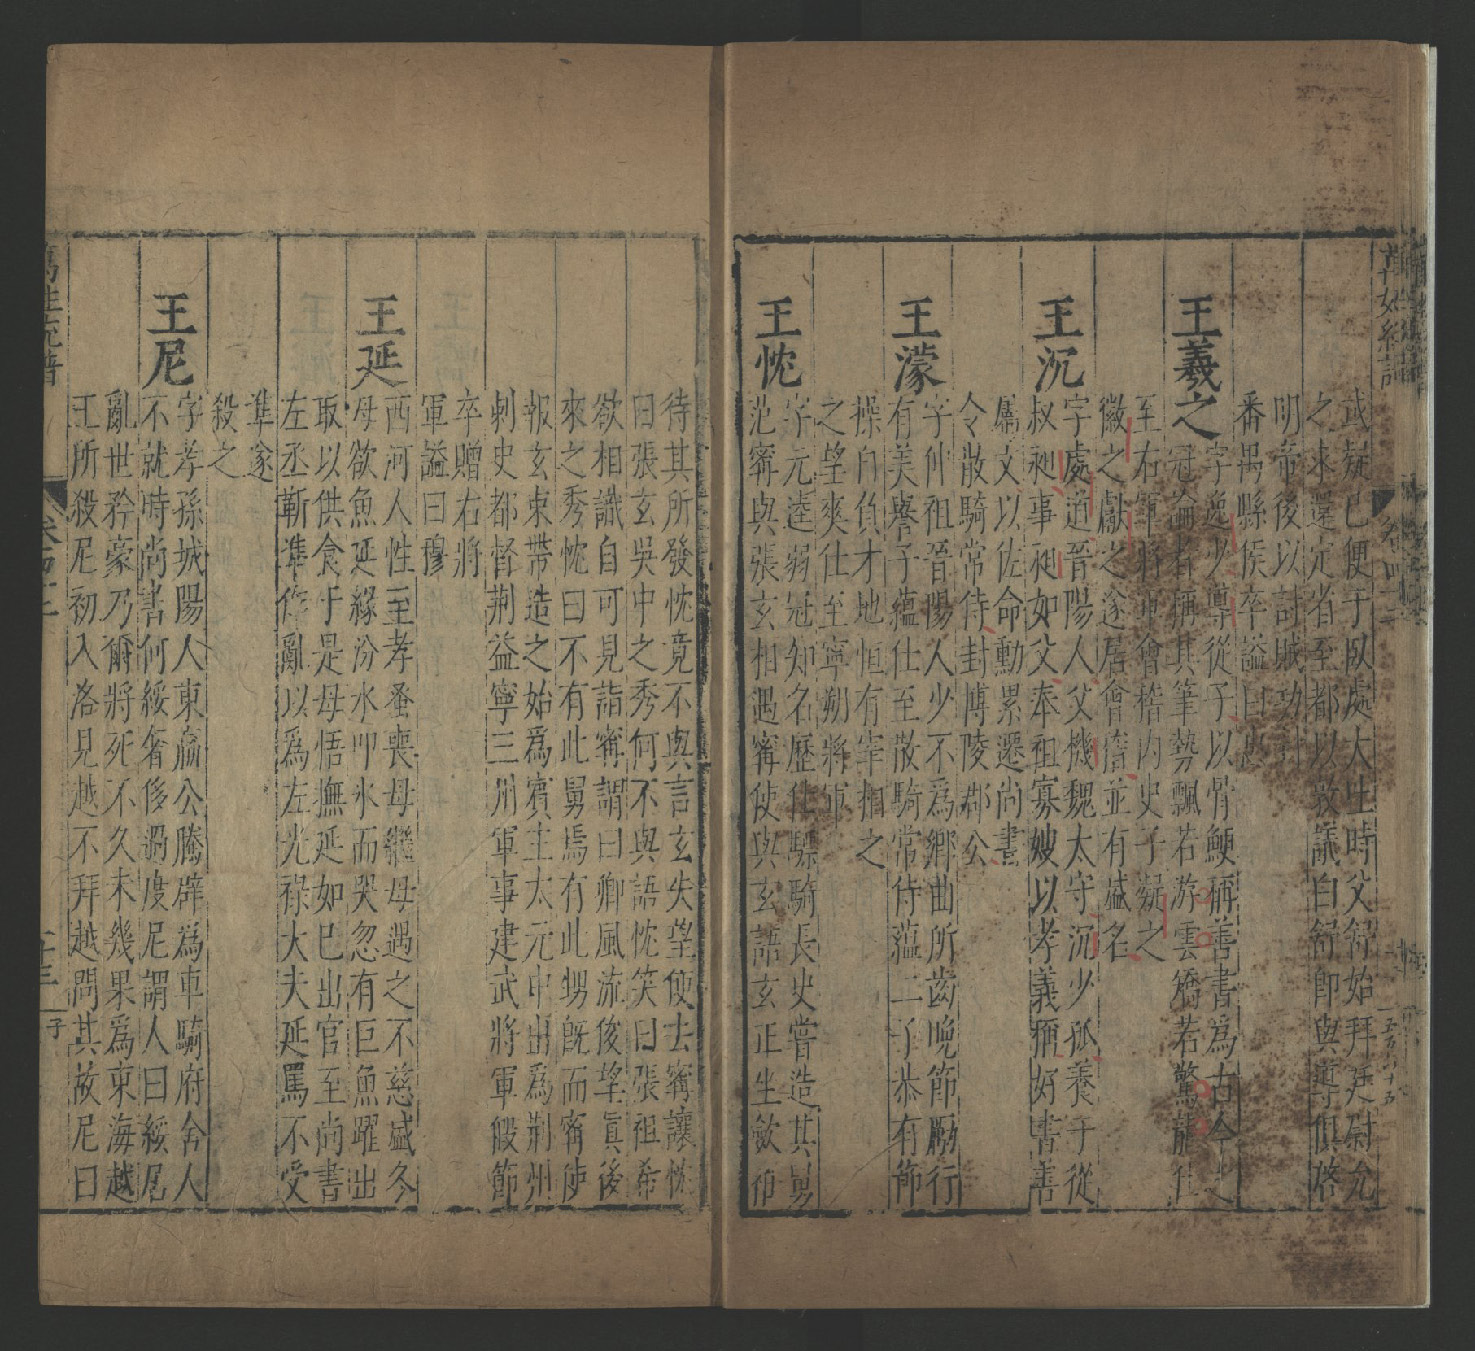 萬姓統譜
卷四十二
或疑已便于臥處大吐時父舒始拜廷尉允
之求還定省至都以敦議白舒即與導俱啓
明帝後以討賊功封
番禺縣侯卒謚曰忠
王羲之字逸少導從子以骨鯁稱善書為古今之
冠論者稱其筆勢飄若游雲矯若驚龍仕
至右軍將軍會稽內史子凝之
徽之獻之遂居會稽並有盛名
王沉字處道晉陽人父機魏太守沉少孤養于從
叔昶事昶如父奉祖寡嫂以孝義稱好書善
屬文以佐命勳累遷尚書
令散騎常侍封博陵郡公
王濛字仲祖晉陽人少不為鄉曲所齒晚節勵行
有美譽子蘊仕至散騎常侍蘊二子恭有節
操自負才地恒有宰相之
之望爽仕至寧朔將軍
王忱字元達弱冠知名歷仕驃騎長史嘗造其舅
范甯與張玄相遇甯使與玄語玄正坐歛衽
待其所發忱竟不與言玄失望便去甯讓忱
曰張玄吳中之秀何不與語忱笑曰張祖希
欲相識自可見詣甯謂曰卿風流俊望真後
來之秀忱曰不有此舅焉有此甥既而甯使
報玄束帶造之始為賓主太元中出為荊州
刺史都督荊益寧三州軍事建武將軍假節
卒贈右將
軍謚曰穆
王延西河人性至孝蚤喪母繼母遇之不慈盛冬
母欲魚延緣汾水叩氷而哭忽有巨魚躍出
取以供食于是母悟撫延如己出官至尚書
左丞靳準作亂以為左光祿大夫延罵不受
準遂
殺之
王尼字孝孫城陽人東嬴公騰辟為車騎府舍人
不就時尚書何綏奢侈過度尼謂人曰綏居
亂世矜豪乃爾將死不久未幾果為東海越
王所殺尼初入洛見越不拜越問其故尼曰
萬姓統譜